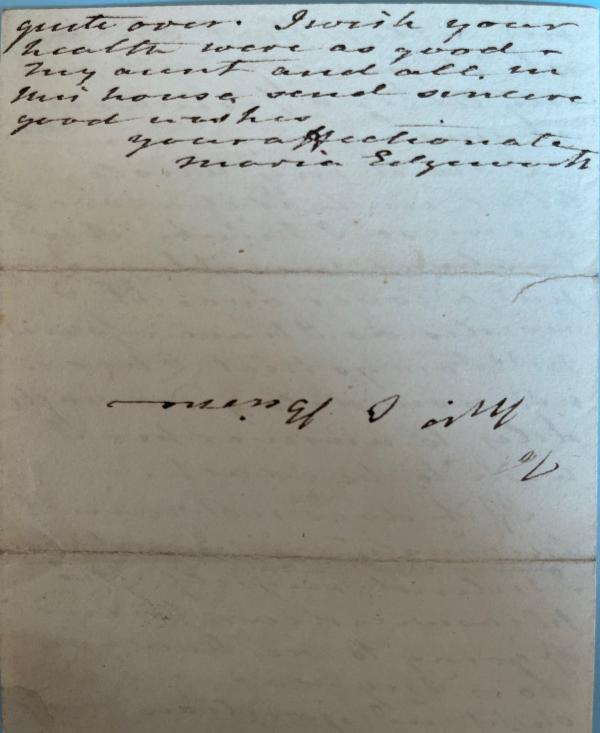 quite over. I wish your
health were as good –
My aunt and all in
this house send sincere
good wishes
your affectionate
Maria Edgeworth
To